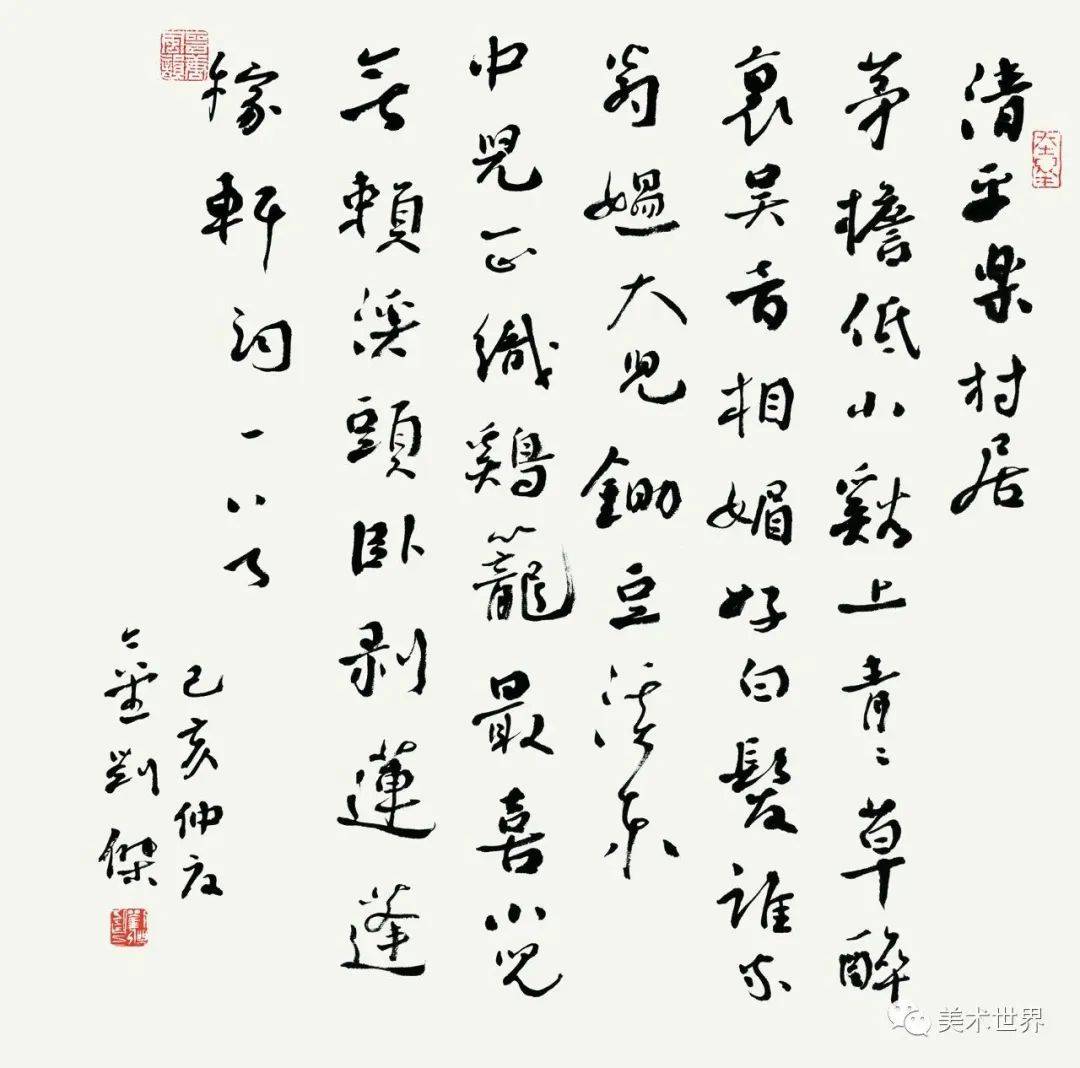 清平樂村居
茅檐低小谿上青〻草醉
裏吳音相媚好白髮誰家
翁媼大兒鋤豆溪東
中兒正織鷄籠最喜小兒
無賴溪頭卧剥蓮蓬
稼軒詞一首
己亥仲夏
劉傑
美术世界